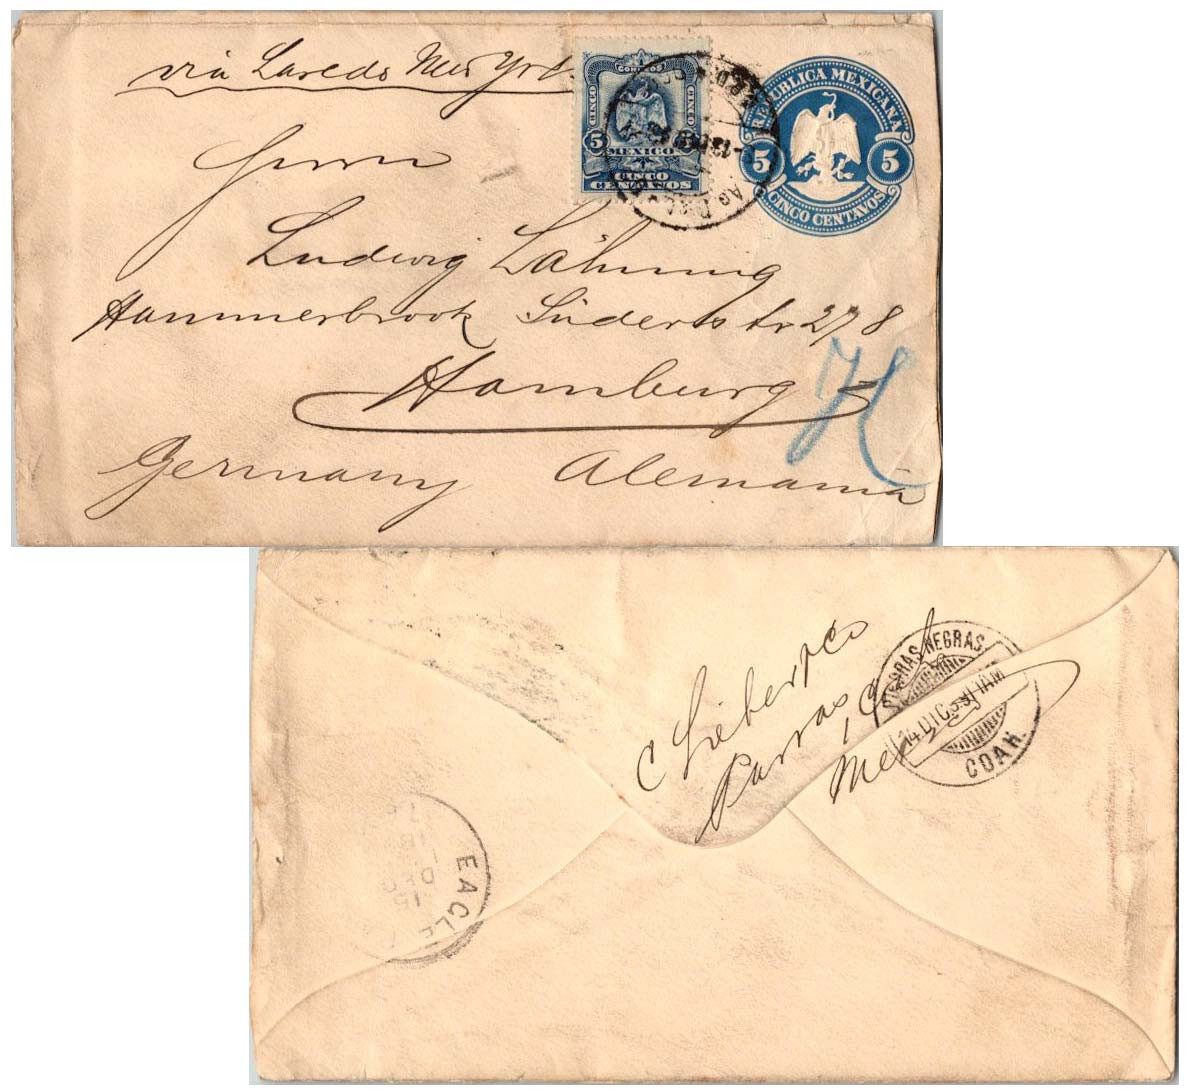 via Laredo New York
Herrn
Ludwig Lähnung
Hammerbrook Süderstr 278
Hamburg
Germany Alemania
CORREOS
CINCO CINCO
5 5
MEXICO
CINCO
CENTAVOS
REPUBLICA MEXICANA
5 5
CINCO CENTAVOS
C Sieber & Co
Parras, C
Mex
PIEDRAS NEGRAS
14 DIC
COAH
EAGLE